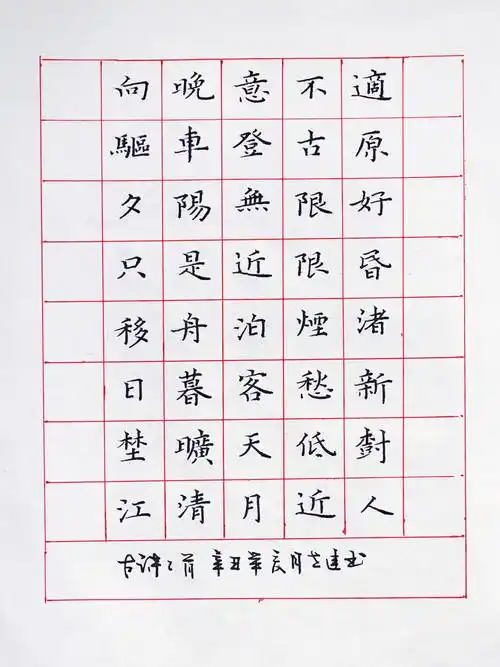 向晚意不適
驅車登古原
夕陽無限好
只是近限昏
移舟泊煙渚
日暮客愁新
埜曠天低樹
江清月近人
古詩二首 辛丑 月 书